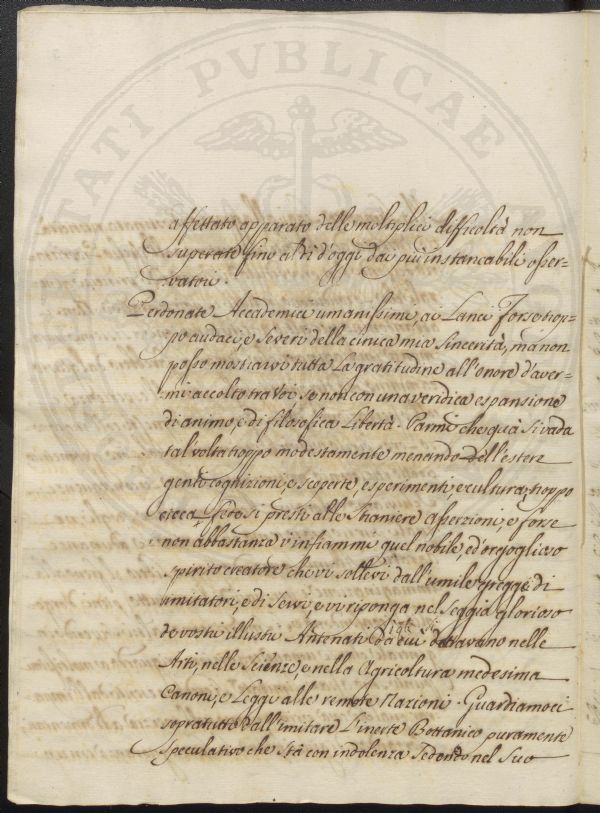 TATI PVBLICAE
affettato apparato delle moltiplici difficoltà non
superate fino al dì d'oggi dai più instancabili osser-
vatori.
Perdonate Accademici umanissimi, ai Lanci forse trop-
po audaci, e severi della cinica mia sincerità, mà non
posso mostrarvi tutta La gratitudine all'onore d'aver-
mi accolto tra Voi se non con una veridica espansione
di animo, e di filosofica Libertà. Parmi che quà si vada
tal volta troppo modestamente menando dell'estere
genti cognizioni, e scoperte, esperimenti, e cultura, troppo
cieca fede si presti alle straniere asserzioni, e forse
non abbastanza v'infiammi quel nobile, ed orgoglioso
spirito creatore che vi sollevi dall'umile gregge di
imitatori, e di servi, e vi riponga nel seggio glorioso
de vostri illustri Antenati da cui dettavano nelle
Arti, nelle Scienze, e nella Agricoltura medesima
Canoni, e Leggi alle remote Nazioni. Guardiamoci
sopratutto dall'imitare L'inerte Bottanico puramente
speculativo che stà con indolenza sedendo nel suo